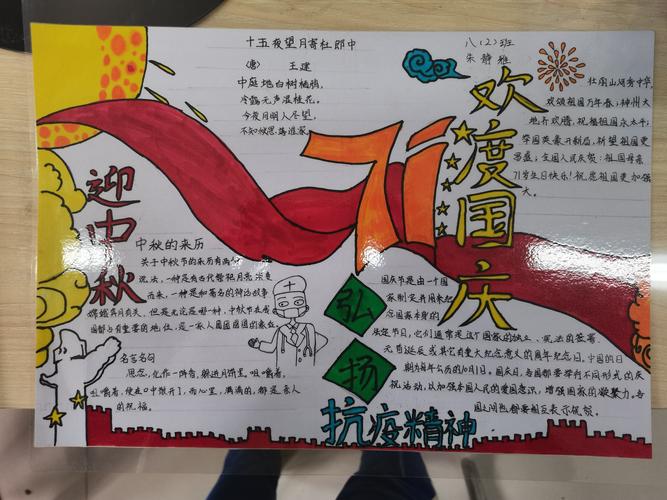 十五夜望月寄杜郎中
(唐) 王建
中庭地白树栖鸦,
冷露无声湿桂花。
今夜月明人尽望,
不知秋思落谁家。
八(2)班
朱静雅
欢度国庆
壮丽山河秀中华,
欢颂祖国万年春;神州大
地齐欢腾,祝福祖国永太平;
举国英豪开新局,祈望祖国更
昌盛;全国人民庆贺:祖国母亲
71岁生日快乐!祝愿祖国更加强
大。
71
迎中秋
中秋的来历
关于中秋节的来历有两
说法,一种是古代帝祀月
而来,一种是知名的神话故事
嫦娥奔月有关,但是无论是哪一种,中秋节在我
国都占有重要的地位,是一家人团团圆圆的象征
名言名句
思念,化作一阵香,躲进月饼里。咀嚼着,
咀嚼着,便在口中散开了,而心里,满满的,都是亲人
的祝福。
国庆节是由一个国
家制定并用来纪
念国家本身的
法定节日,它们通常是这个国家的独立、宪法的签署、
元首诞辰或其它有重大纪念意义的周年纪念日。中国的日
期为每年公历的10月1日。国庆日,各国都要举行不同形式的庆
祝活动,以加强本国人民的爱国意识,增强国家的凝聚力。各
国之间也都要相互表示祝贺。
弘扬
抗疫精神